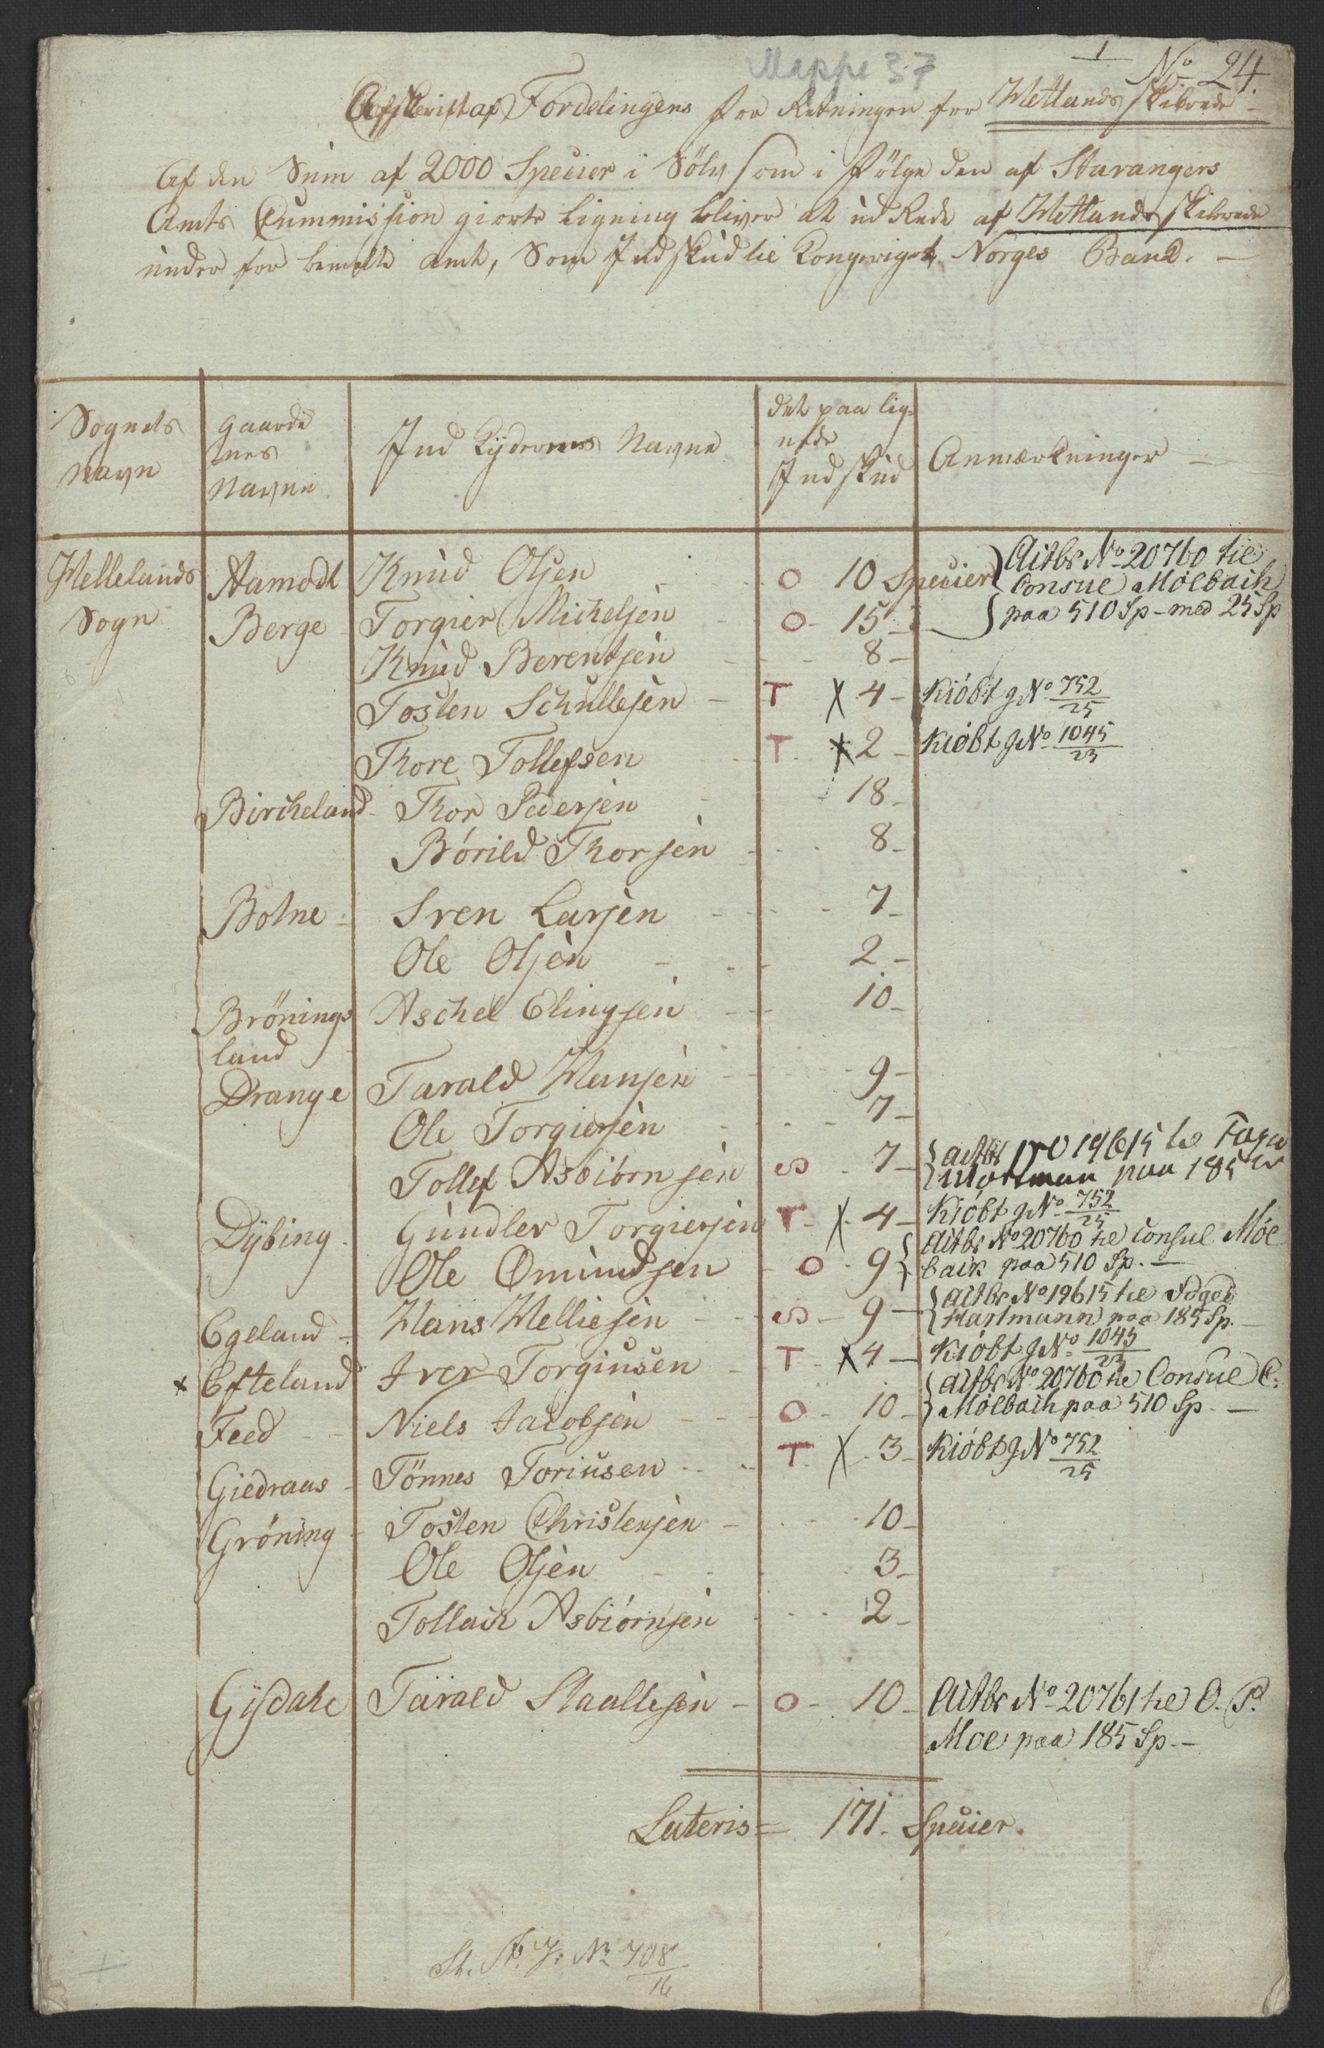 Mappe 37
1
No 24.
Afskrift af Fordelingens for Retningen for Hetlands skibrede
Af den Sum af 2000 Specier i Sølv som i Følge den af Stavangers
Amts Commission giorte Ligning bliver at udRede af Hetlands skibrede
under for bemelte amt, Som Indskud til Kongeriget Norges Banck. —
Sognets Navn
Gaarde nes Navne
Ind Kyderens Navne
det paa lignede Indskud
Anmærkninger —
Hellelands Sogn
Aamodt Knud Olsen O 10 Specier } Aitbr No 20760 til Consul Mølbach
Berge Torgier Michelsen O 15 } paa 510 Sp — med 25 Sp
Knud Berentsen 8
Tosten Schullesen T X 4 Kiøbt J No 752/25
Thore Tollefsen T X 2 Kiøbt J No 1045/23
Bircheland Thor Pedersen 18
Børild Thorsen 8
Botne Sven Larsen 7
Ole Olsen 2
Brønings land Aschel Elingsen 10
Drange Tarald Hansen 9
Ole Torgiersen 7
Tollef Asbiørnsen S 7 { Aitbr No 19615 til Foged Hartman paa 185 Sp
Dybing Gundler Torgiersen T X 4 Kiøbt J No 752/25
Ole Omundsen O 9 { Aitbr No 20760 til Consul Møl bach paa 510 Sp. —
Egeland Hans Helliesen S 9 { Aitbr No 19615 til Foged Hartmann paa 185 Sp. —
x Efteland Iver Torgiusen T X 4 Kiøbt J No 1045/23
Feed Niels Jacobsen O 10 { Aitbr No 20760 til Consul C. Mølbach paa 510 Sp. —
Giedraas Tønnes Toriusen T X 3 Kiøbt J No 752/25
Grøning Tosten Christensen 10
Ole Olsen 3
Tollack Asbiørnsen 2
Gysdahl Tarald Staallesen O 10 Aitbr No 20761 til O. P.
Moe paa 185 Sp. —
Lateris = 171. Specier.
St. Fr. J. No 708/16